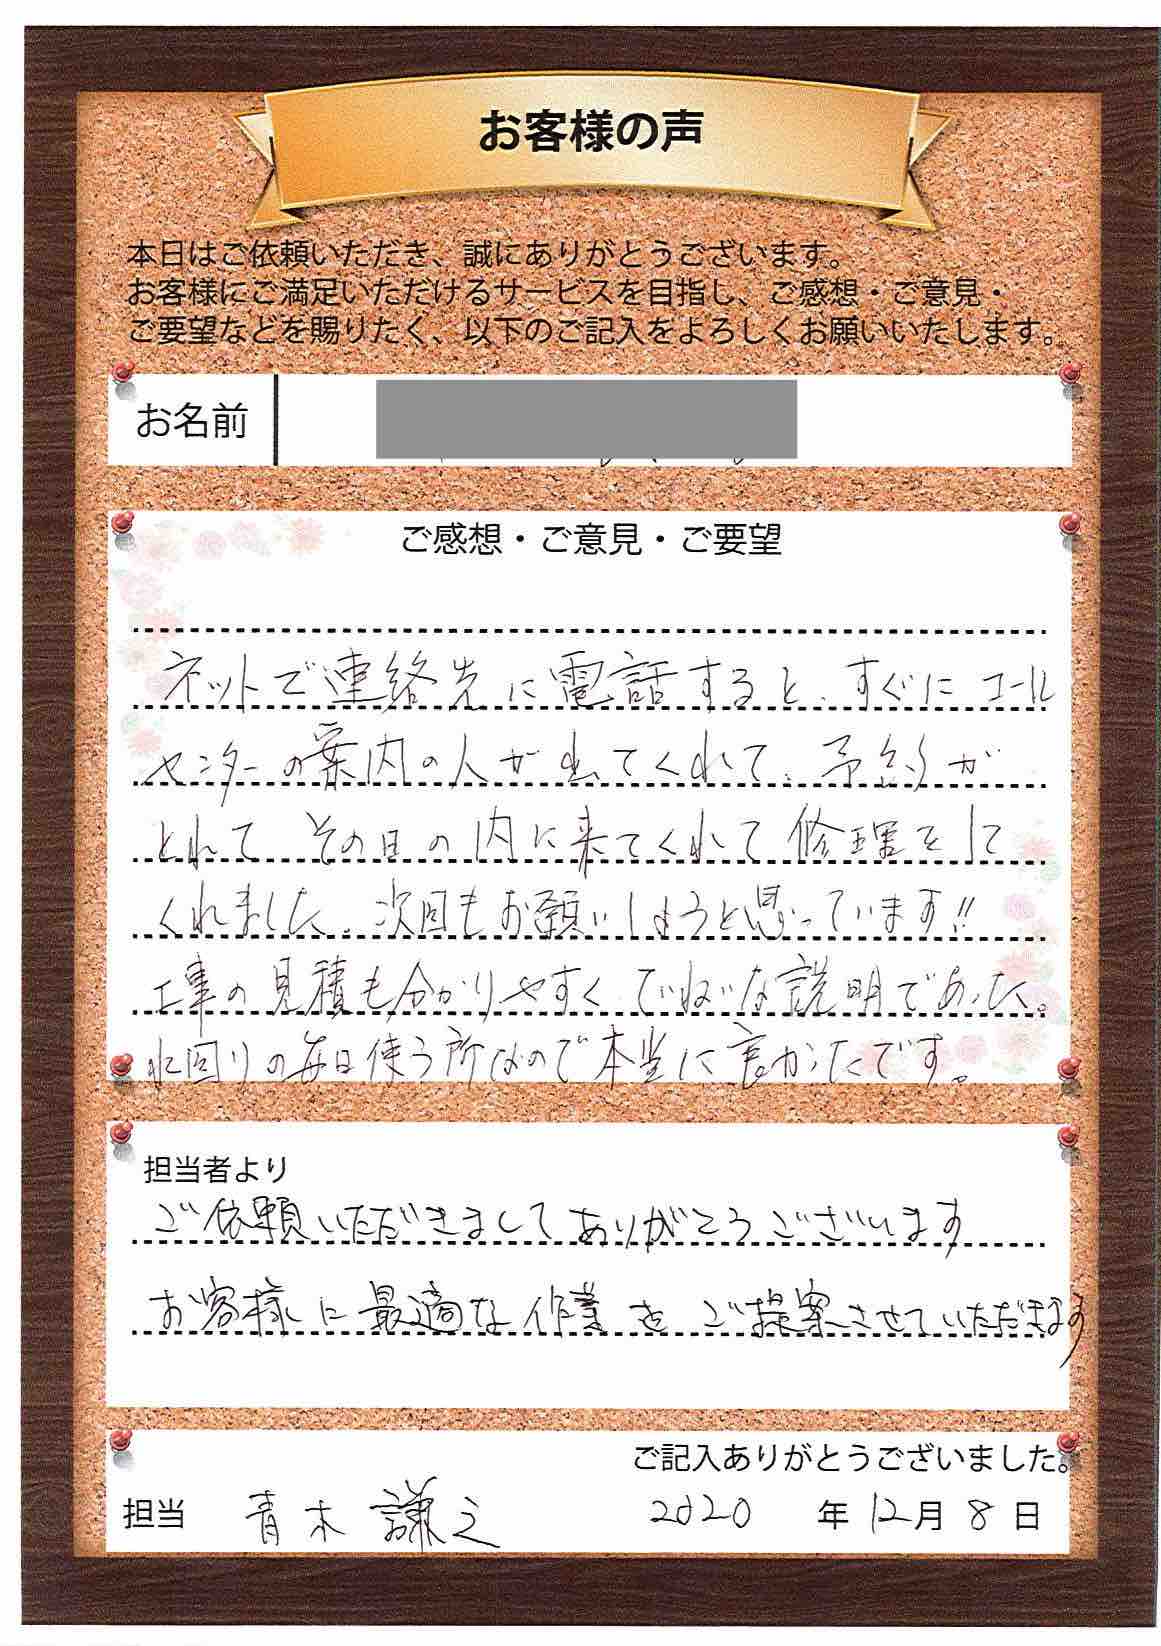 お客様の声
本日はご依頼いただき、誠にありがとうございます。
お客様にご満足いただけるサービスを目指し、ご感想・ご意見・
ご要望などを賜りたく、以下のご記入をよろしくお願いいたします。
お名前
ご感想・ご意見・ご要望
ネットで連絡先に電話すると、すぐにコール
センターの案内の人が出てくれて、予約が
とれて その日の内に来てくれて修理をして
くれました。次回もお願いしようと思っています!!
工事の見積も分かりやすく、ていねいな説明であった。
水回りの毎日使う所なので本当に良かったです。
担当者より
ご依頼いただきましてありがとうございます
お客様に最適な作業をご提案させていただきます
ご記入ありがとうございました。
担当 青木 謙之 2020 年 12月 8 日